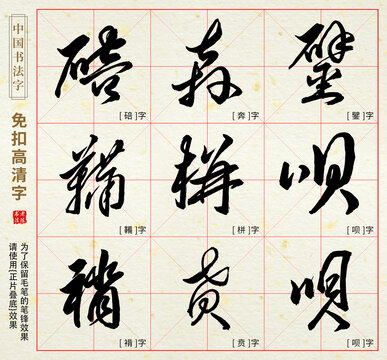 中国书法字
免扣高清字
为了保留毛笔的笔锋效果
请使用[正片叠底]效果
碚 奔 鐾
[碚]字 [奔]字 [鐾]字
鞴 栟 呗
[鞴]字 [栟]字 [呗]字
褙 贲 呗
[褙]字 [贲]字 [呗]字